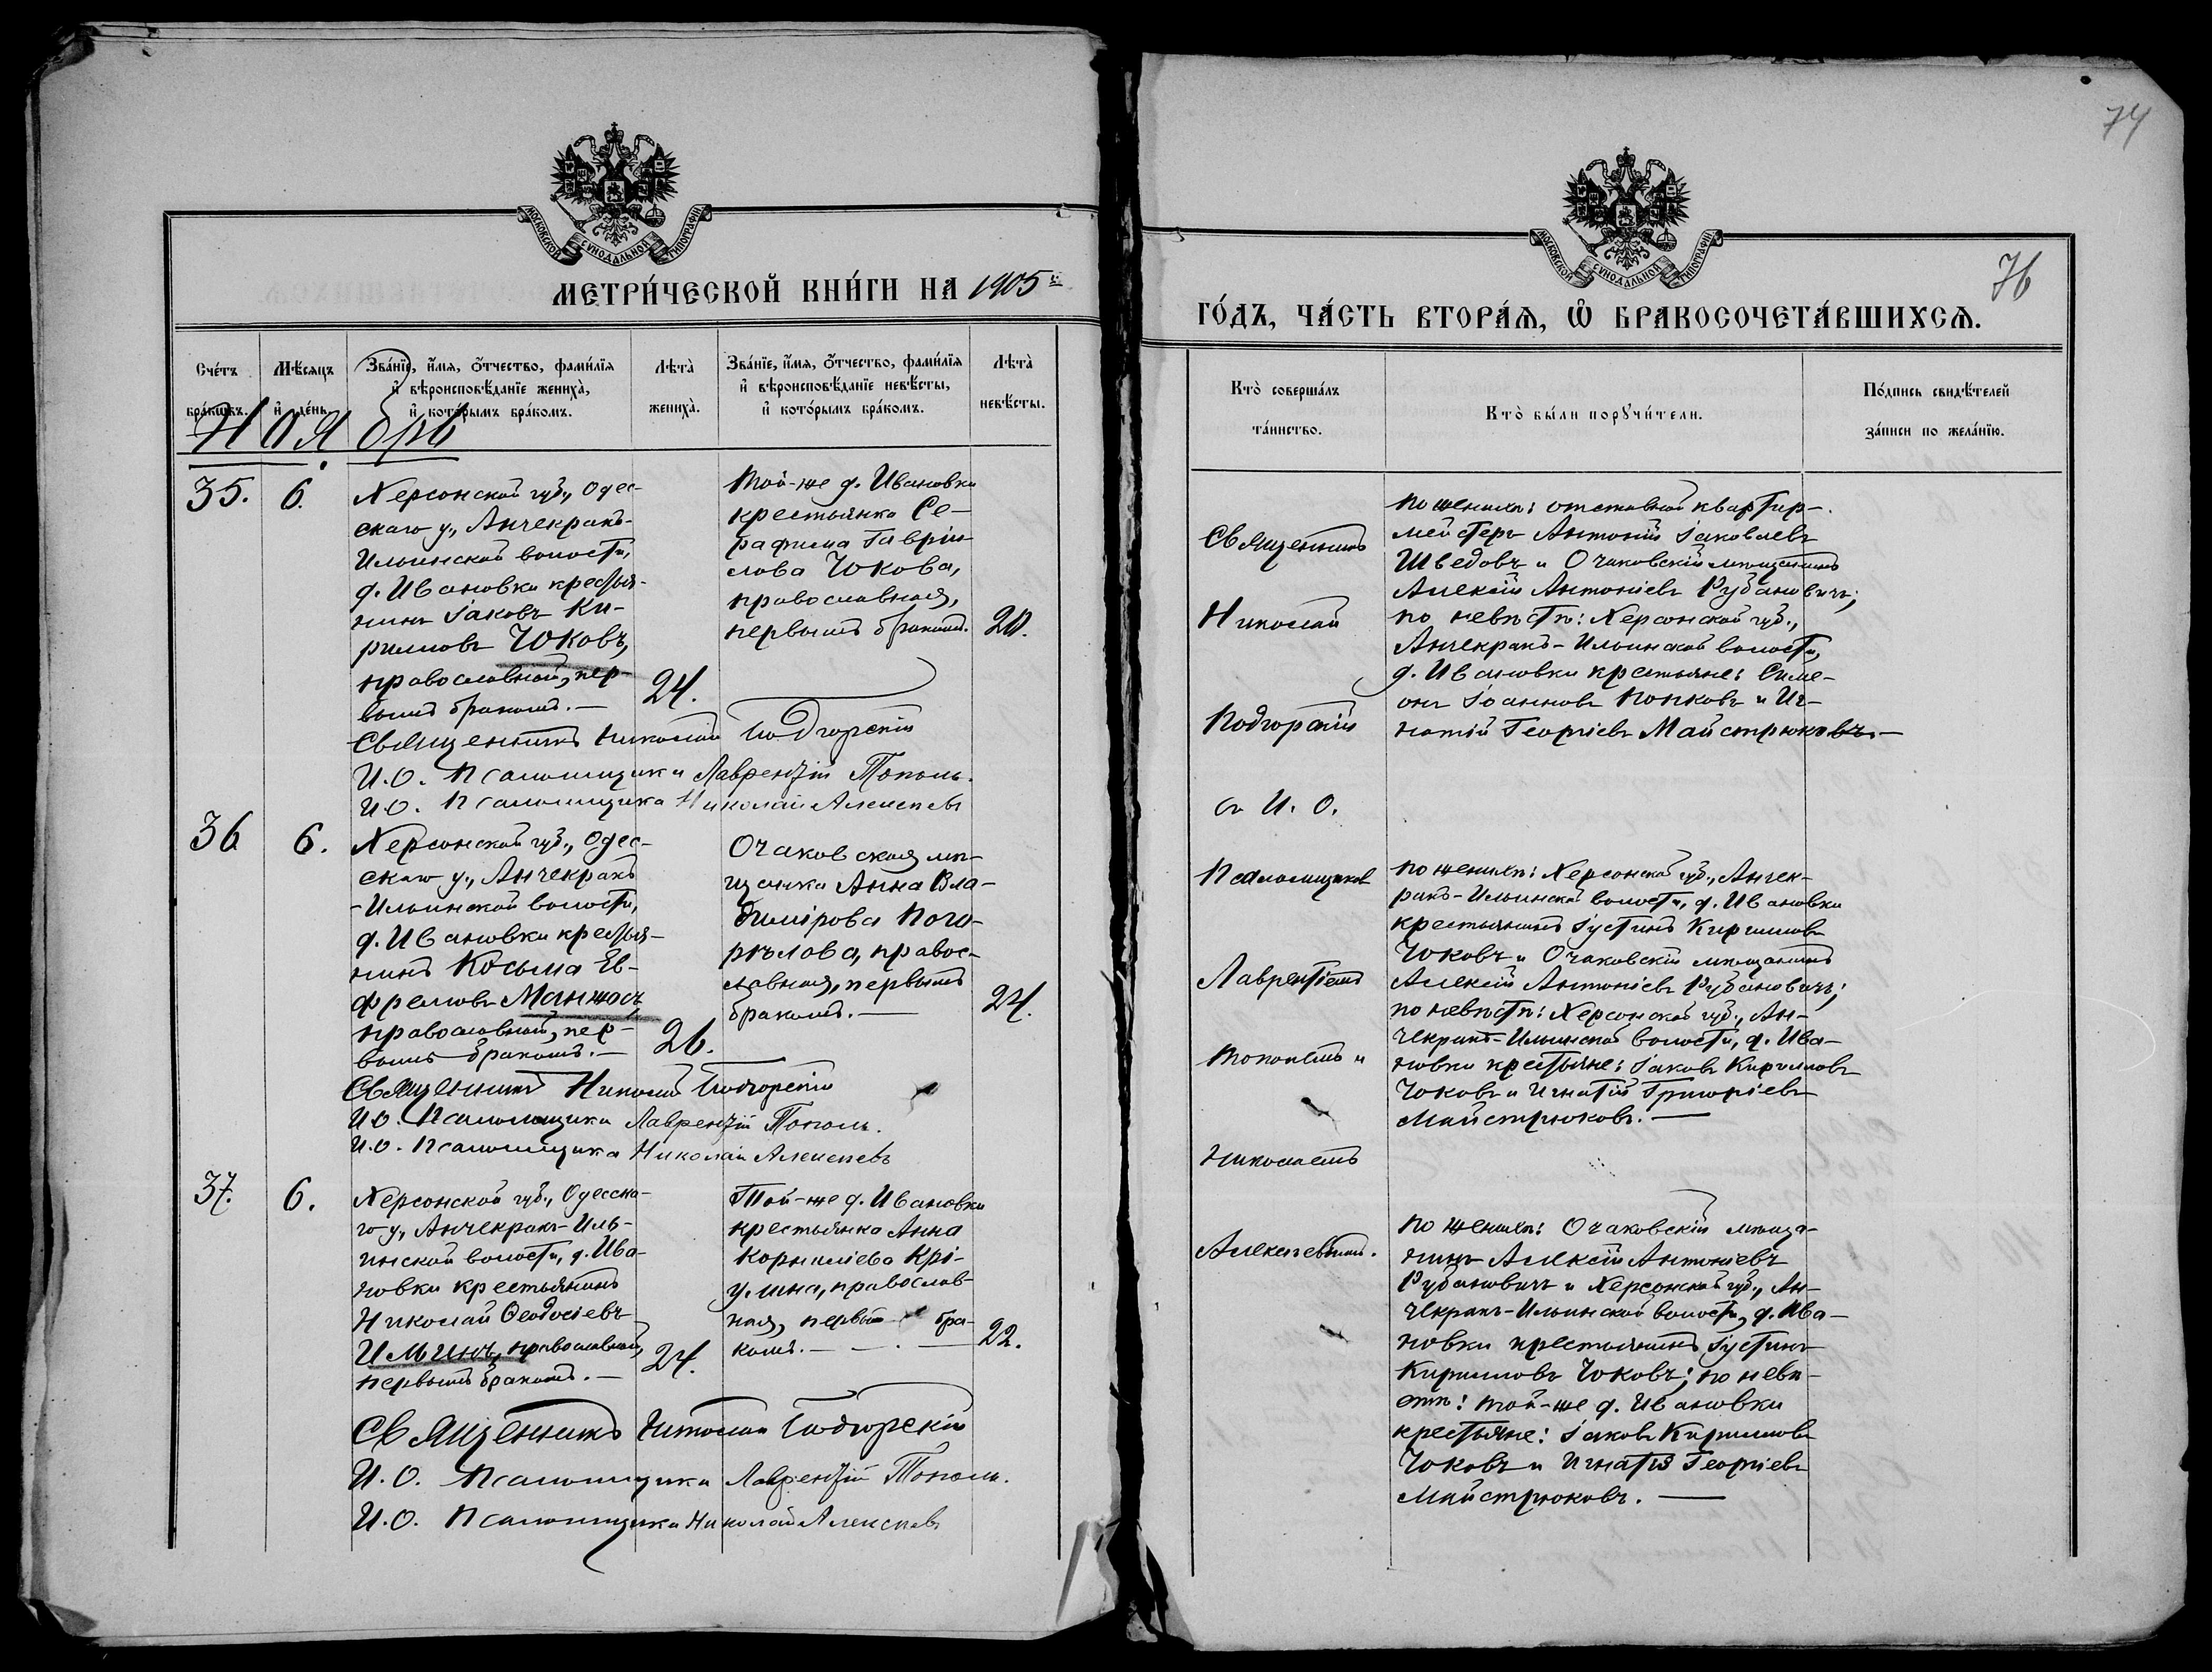 МОСКОВСКОЙ СУНОДАЛЬНОЙ ТИПОГРАФІИ
МЕТРИ́ЧЕСКОЙ КНИ́ГИ НА 1905 г.
Сче́тъ бра́кѡвъ.
Мѣ́сяцъ и҆ де́нь.
Зва́нїе, и҆́мя, ѻ҆́тчество, фами́лїя
и҆ вѣроисповѣ́данїе жениха̀,
и҆ кото́рымъ бра́комъ.
Лѣта̀ жениха̀.
Зва́нїе, и҆́мя, ѻ҆́тчество, фами́лїя
и҆ вѣроисповѣ́данїе невѣ́сты,
и҆ кото́рымъ бра́комъ.
Лѣта̀ невѣ́сты.
Ноябрь
35.
6.
Херсонской губ., Одес-
скаго у., Анчекракъ-
Ильинской волости,
д. Ивановки крестья-
нинъ Іаковъ Ки-
рилловъ Чоковъ,
православный, пер-
вымъ бракомъ. —
24.
Той-же д. Ивановки
крестьянка Се-
рафима Гаврiи-
лова Чокова,
православная,
первымъ бракомъ.
20.
Священникъ Николай Подгорскій
И. О. Псаломщика Лаврентій Тополь.
И. О. Псаломщика Николай Алексѣевъ
36
6.
Херсонской губ., Одес-
скаго у., Анчекракъ
-Ильинской волости,
д. Ивановки крестья-
нинъ Косьма Еѵ-
фремовъ Манжосъ,
православный, пер-
вымъ бракомъ. —
26.
Очаковская мѣ-
щанка Анна Вла-
димірова Пого-
рѣлова, правос-
лавная, первымъ
бракомъ. —
24.
Священникъ Николай Подгорскій
И. О. Псаломщика Лаврентій Тополь.
И. О. Псаломщика Николай Алексѣевъ
37.
6.
Херсонской губ., Одесска-
го у., Анчекракъ-Иль-
инской волости, д. Ива-
новки крестьянинъ
Николай Ѳеодосіевъ
Ильинъ, православный,
первымъ бракомъ. —
24.
Той-же д. Ивановки
крестьянка Анна
Корниліева Крі-
улина, православ-
ная, первы бра-
комъ. —
22.
Священникъ Николай Подгорскій
И. О. Псаломщика Лаврентій Тополь.
И. О. Псаломщика Николай Алексѣевъ
74
МОСКОВСКОЙ СУНОДАЛЬНОЙ ТИПОГРАФІИ
76
ГО́ДЪ, ЧА́СТЬ ВТОРА́Ѧ, Ѡ҆ БРАКОСОЧЕТА́ВШИХСѦ.
Кто̀ соверша́лъ
та́инство.
Кто̀ бы́ли порꙋчи́тели.
По́дпись свидѣ́телей
за́писи по жела́нїю.
Священникъ
Николай
Подгорскій
съ И. О.
Псаломщиковъ
Лаврентіемъ
Тополемъ и
Николаемъ
Алексѣевымъ.
По женихѣ: отставной квартир-
мейстеръ Антоній Іаковлевъ
Шведовъ и Очаковскій мѣщанинъ
Алексій Антоніевъ Рубановичъ;
по невѣстѣ: Херсонской губ.,
Анчекракъ-Ильинской волости,
д. Ивановки крестьяне: Симе-
онъ Іоанновъ Попковъ и Иг-
натій Георгіевъ Майстрюковъ. —
По женихѣ: Херсонской губ., Анчек-
ракъ-Ильинской волости, д. Ивановки
крестьянинъ Іустинъ Кирилловъ
Чоковъ и Очаковскій мѣщанинъ
Алексій Антоніевъ Рубановичъ;
по невѣстѣ: Херсонской губ., Ан-
чекракъ-Ильинской волости, д. Ива-
новки крестьяне: Іаковъ Кирилловъ
Чоковъ и Игнатій Григоріевъ
Майстрюковъ. —
По женихѣ: Очаковскій мѣща-
нинъ Алексій Антоніевъ
Рубановичъ и Херсонской губ., Ан-
чекракъ-Ильинской волости, д. Ива-
новки крестьянинъ Іустинъ
Кирилловъ Чоковъ; по невѣ-
стѣ: той-же д. Ивановки
крестьяне: Іаковъ Кирилловъ
Чоковъ и Игнатій Георгіевъ
Майстрюковъ. —